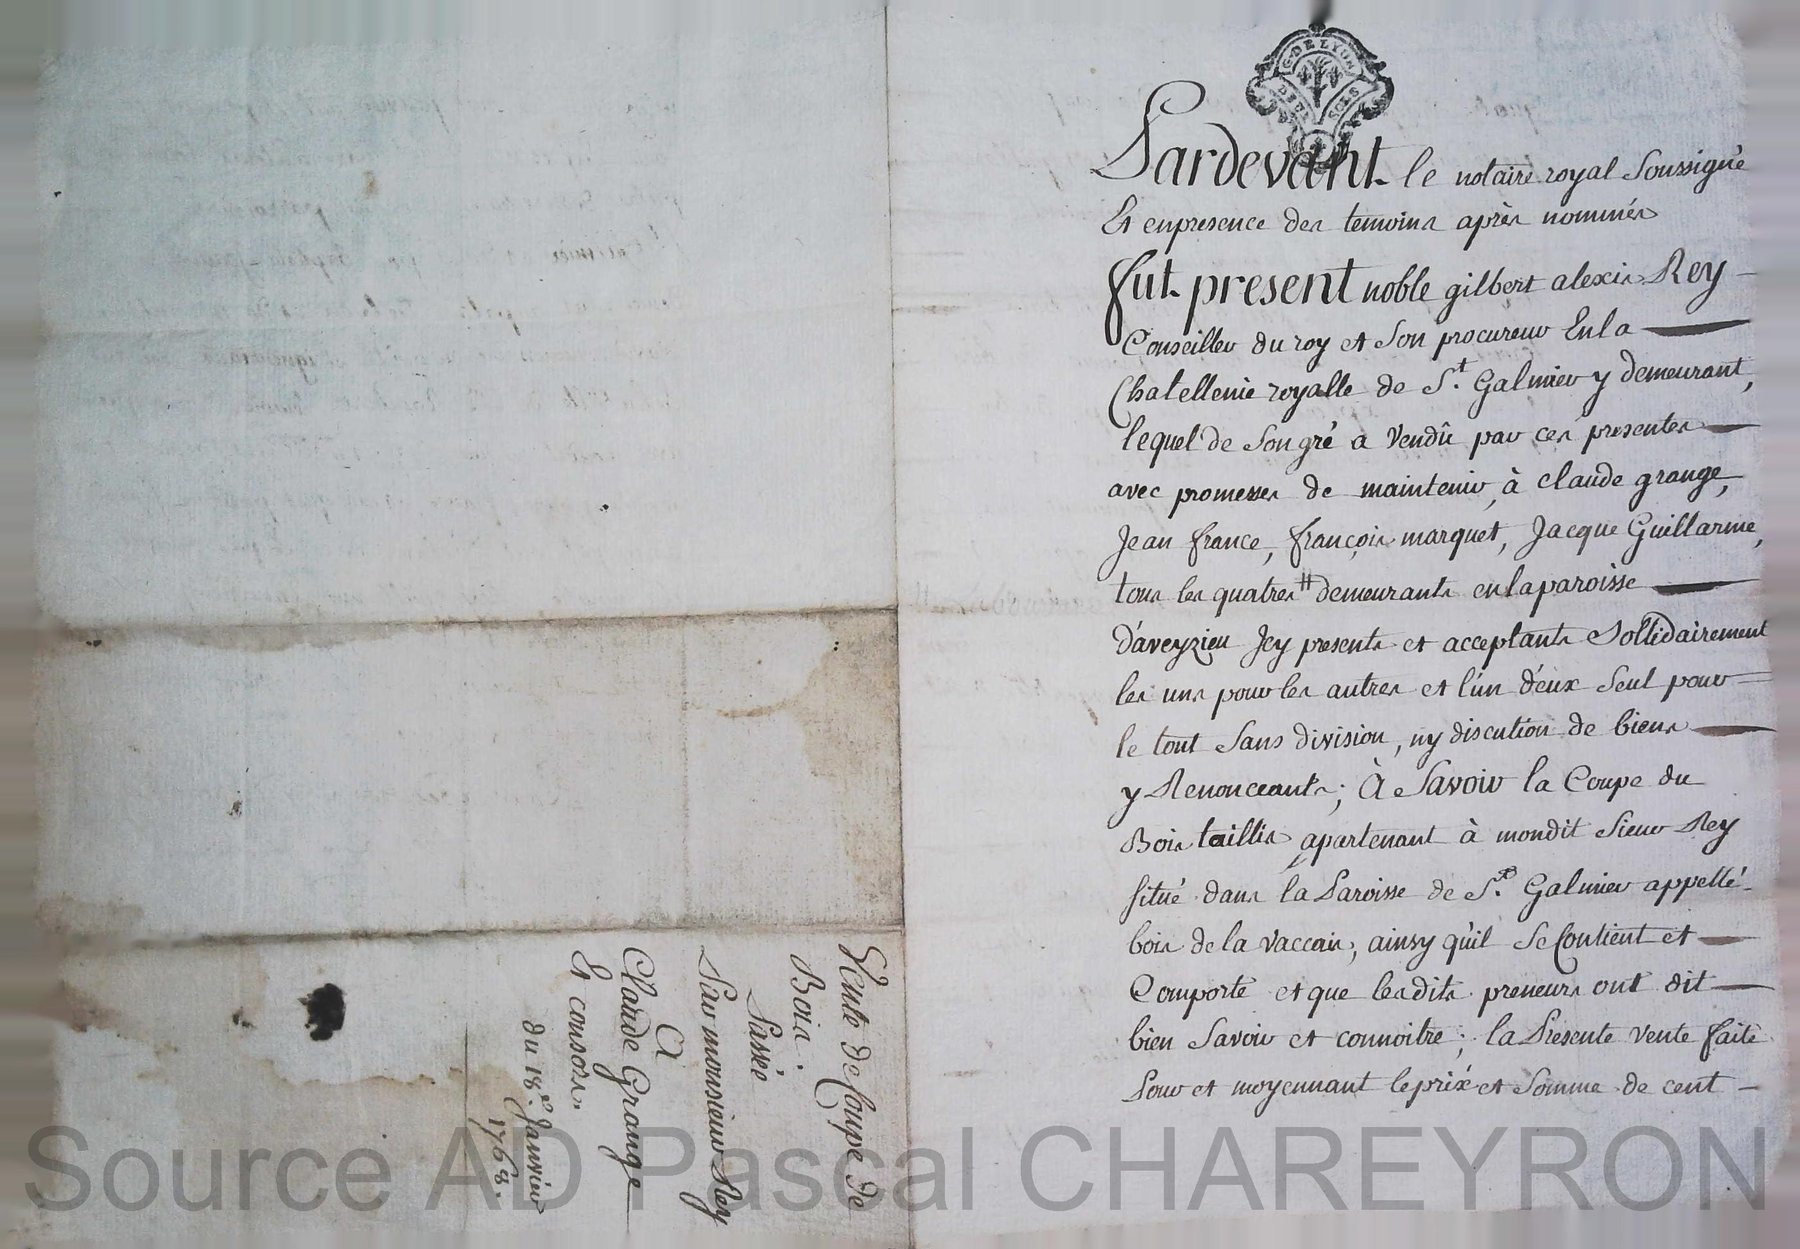 G. DE LYON
DEUX SOLS
Pardevant le notaire royal soussigné
Et enpresence des temoins après nommés
fut present noble gilbert alexis Rey
Conseiller du roy et son procureur Enla
Chatellenie royalle de St. Galmier y demeurant,
lequel de son gré a vendû par ces presentes
avec promesses de maintenir, à claude grange,
Jean france, françois marquet, Jacque Guillarme,
tous les quatres # demeurants enlaparoisse
D'aveyzieu Jcy presents et acceptants Sollidairement
les uns pour les autres et l'un d'eux seul pour
le tout sans division, ny discution de biens
y Renonceants; À Savoir la Coupe du
Bois taillis apartenant à mondit sieur Rey
situé dans la Paroisse de St. Galmier appellé
bois de la vaccais, ainsy qu'il se Contient et
Comporte et que lesdits preneurs ont dit
bien savoir et connoitre; la Présente vente faite
Pour et moyennant leprix et somme de cent
Vente de Coupe de
Bois.
Passée
Par monsieur Rey
A
Claude Grange
Et consors.
du 18e. Janvier
1768.
Source AD Pascal CHAREYRON